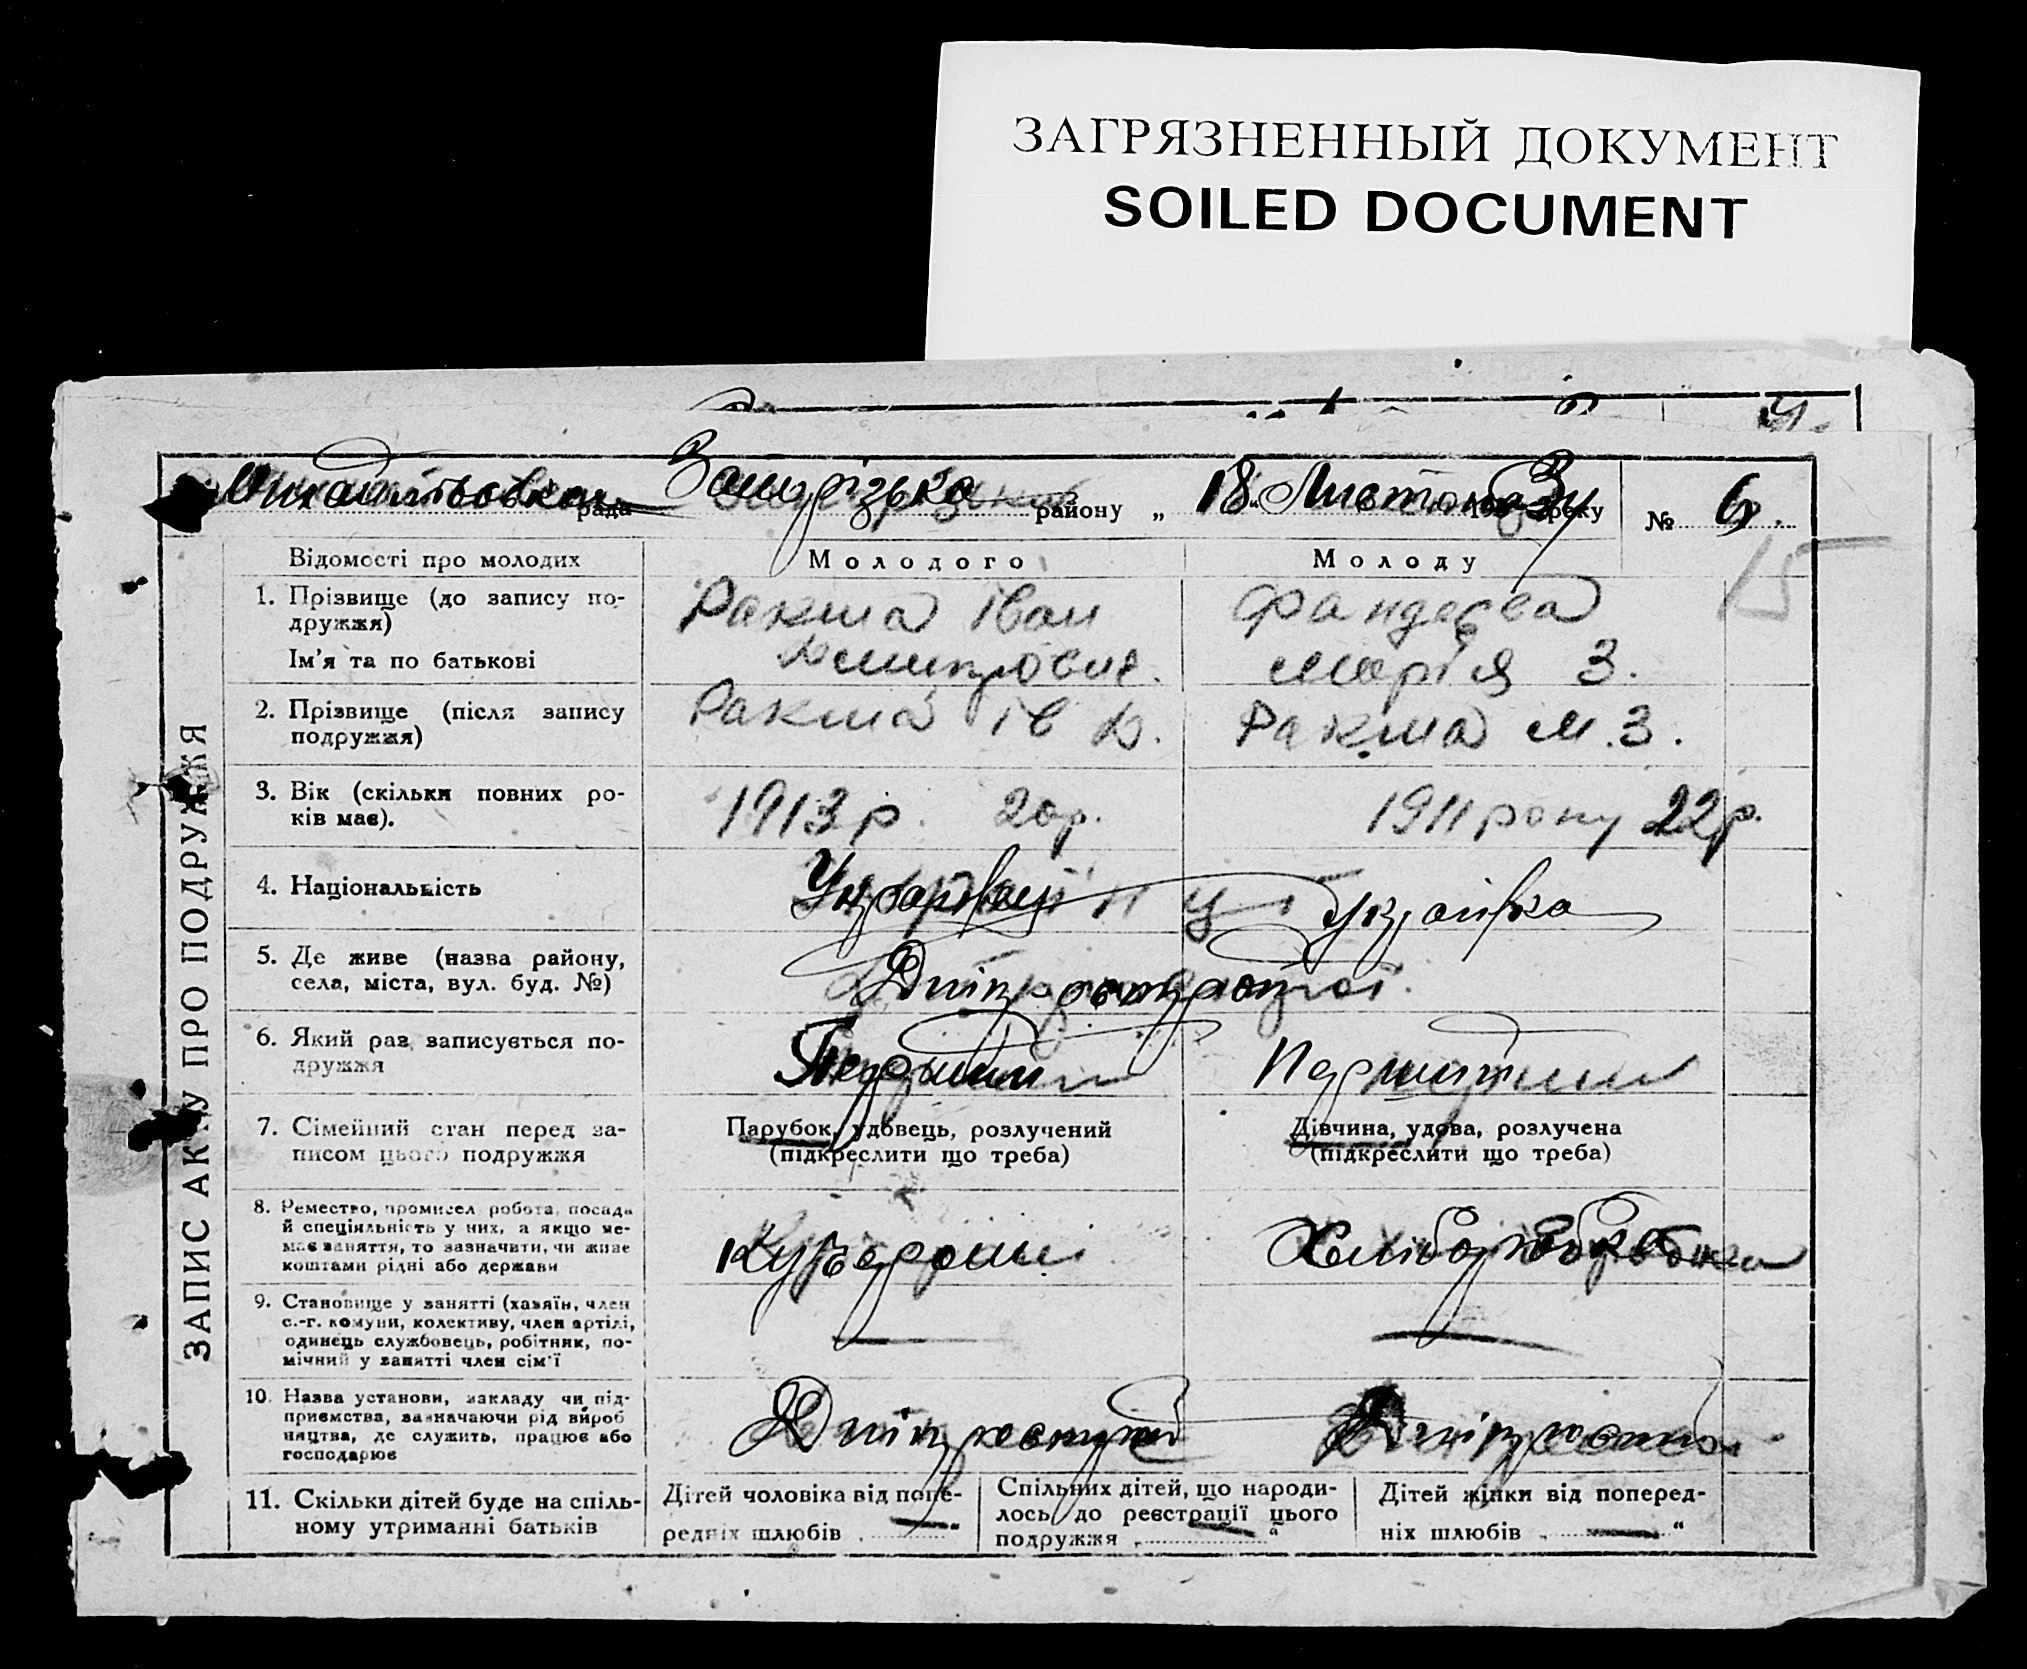 ЗАГРЯЗНЕННЫЙ ДОКУМЕНТ
SOILED DOCUMENT
ЗАПИС АКТУ ПРО ПОДРУЖЖЯ
Михайлівська рада Запорізька району „18" Листопада 193 3 року № 6.
15
Відомості про молодих Молодого Молоду
1. Прізвище (до запису подружжя)
Ім'я та по батькові
Ракша Іван
Дмитрович.
Марія З.
2. Прізвище (після запису
подружжя)
Ракша Ів Д.
Ракша М.З.
3. Вік (скільки повних ро-
ків має).
1913 р. 20 р.
1911 року 22 р.
4. Національність
Українець
Українка
5. Де живе (назва району,
села, міста, вул. буд. №)
6. Який раз записується по-
дружжя
Перший
7. Сімейний стан перед за-
писом цього подружжя
Парубок, удовець, розлучений
(підкреслити що треба)
Дівчина, удова, розлучена
(підкреслити що треба)
8. Ремество, промисел робота, посада
й спеціяльність у них, а якщо не-
має заняття, то зазначити, чи живе
коштами рідні або держави
9. Становище у занятті (хазяїн, член
с.-г. комуни, колективу, член артілі,
одинець службовець, робітник, по-
мічний у занятті член сім'ї
10. Назва установи, закладу чи під-
приємства, зазначаючи рід вироб
ництва, де служить, працює або
господарює
11. Скільки дітей буде на спіль-
ному утриманні батьків
Дітей чоловіка від попе-
редніх шлюбів „ — "
Спільних дітей, що народи-
лось до реєстрації цього
подружжя „ — "
Дітей жінки від поперед-
ніх шлюбів „ — "